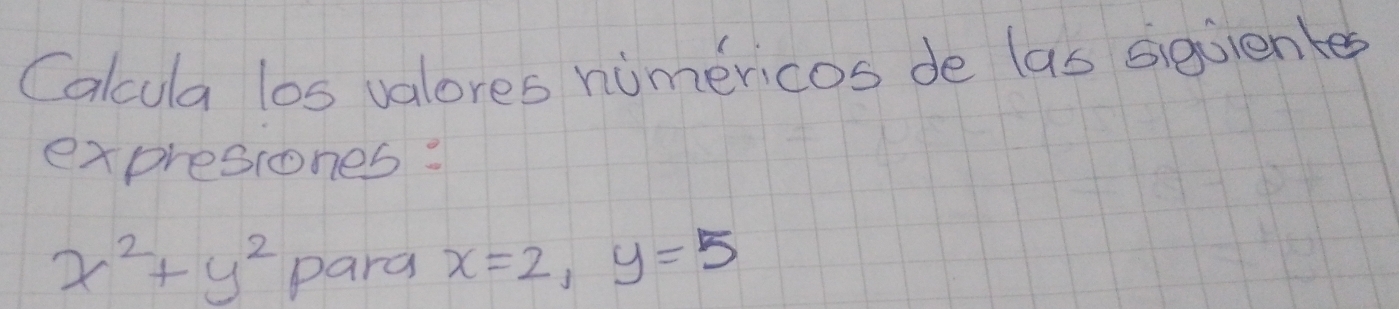 Calcula los valores numéricos de las siguientes
expresiones:
x² + y² para x = 2, y = 5